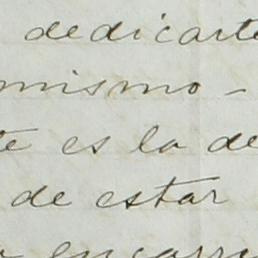 dedicarte
mismo -
te es la de
de estar